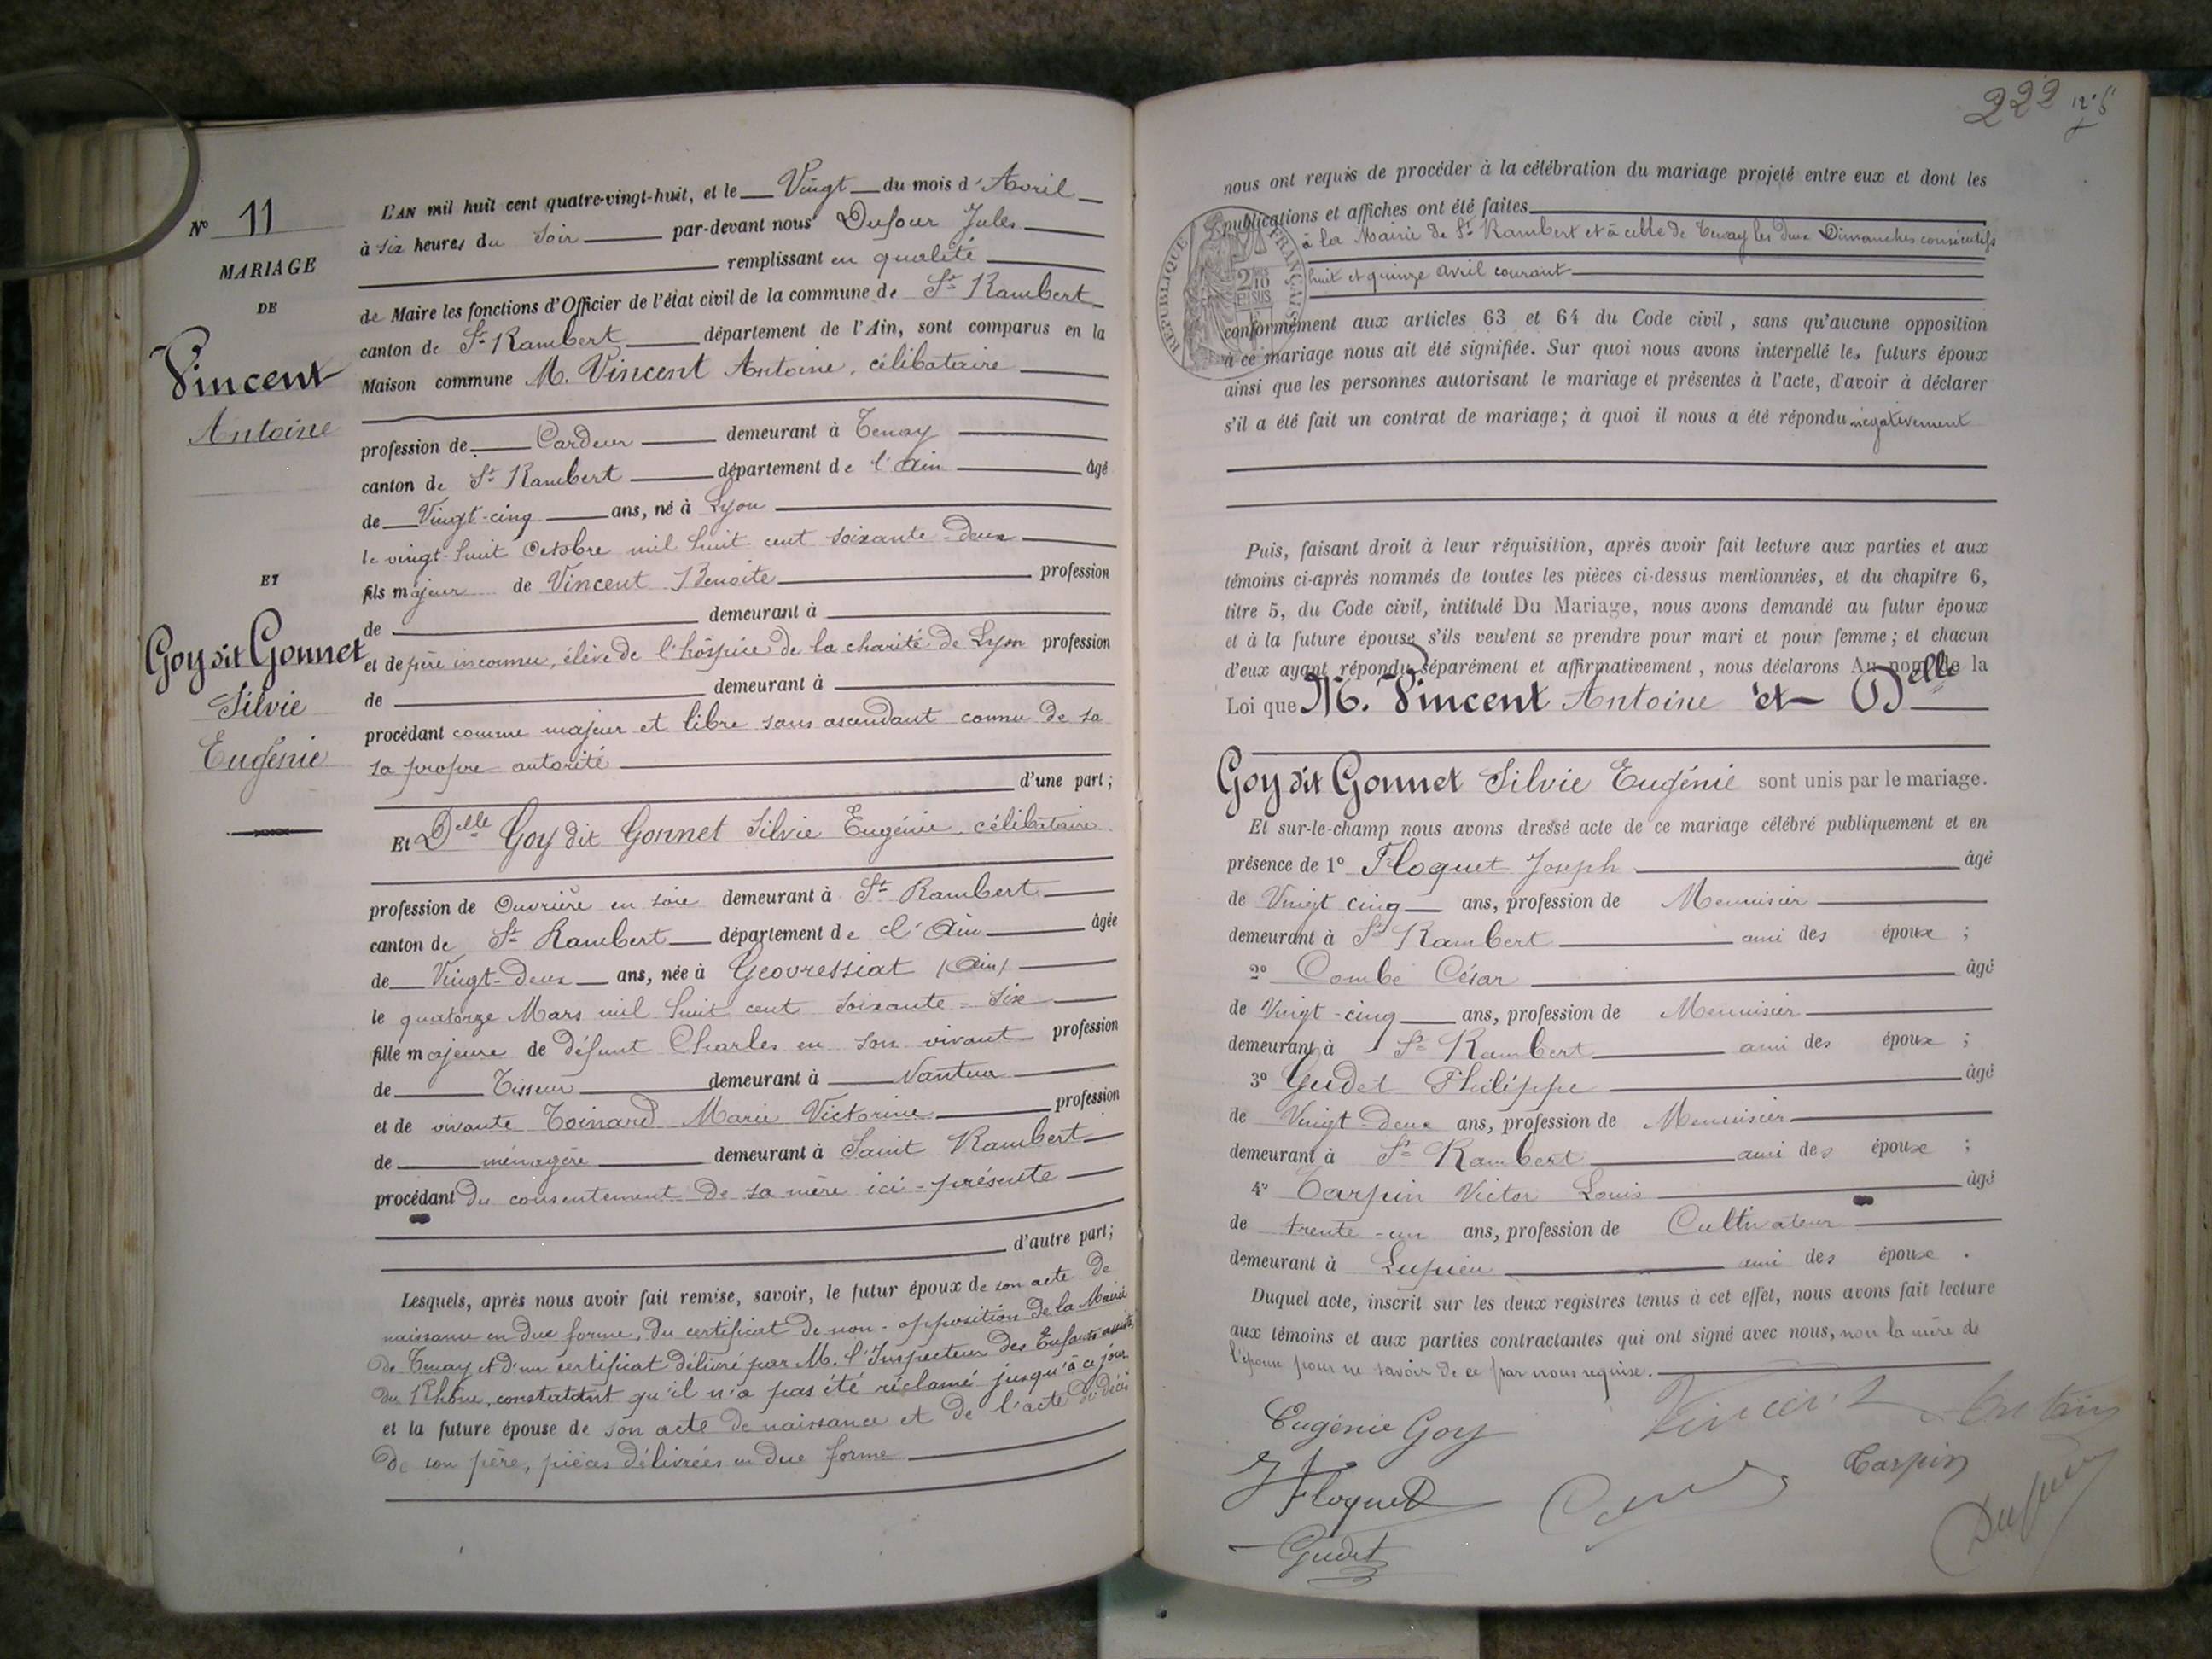 N° 11
MARIAGE
DE
Vincent
Antoine
ET
Goy dit Gonnet
Silvie
Eugénie
L'AN mil huit cent quatre-vingt-huit, et le Vingt du mois d'Avril
à six heures du Soir par-devant nous Dufour Jules
remplissant en qualité
de Maire les fonctions d'Officier de l'état civil de la commune de St Rambert
canton de St Rambert département de l'Ain, sont comparus en la
Maison commune M. Vincent Antoine, célibataire
profession de Cardeur demeurant à Tenay
canton de St Rambert département de l'Ain âgé
de Vingt-cinq ans, né à Lyon
le vingt-huit Octobre mil huit cent soixante-deux
fils majeur de Vincent Benoite profession
de demeurant à
et de père inconnu, élève de l'hospice de la charité de Lyon profession
de demeurant à
procédant comme majeur et libre sans ascendant connu de sa
sa propre autorité
d'une part;
Et Delle Goy dit Gonnet Silvie Eugénie, célibataire
profession de Ouvrière en soie demeurant à St Rambert
canton de St Rambert département de l'Ain âgée
de Vingt-deux ans, née à Géovressiat (Ain)
le quatorze Mars mil huit cent soixante-six
fille majeure de défunt Charles en son vivant profession
de Tisseur demeurant à Nantua
et de vivante Toinard Marie Victorine profession
de ménagère demeurant à Saint Rambert
procédant du consentement de sa mère ici-présente
d'autre part;
Lesquels, après nous avoir fait remise, savoir, le futur époux de son acte de
naissance en due forme, du certificat de non-opposition de la Mairie
de Tenay et d'un certificat délivré par M. l'Inspecteur des Enfants assistés
du Rhône, constatant qu'il n'a pas été réclamé jusqu'à ce jour
et la future épouse de son acte de naissance et de l'acte de décès
de son père, pièces délivrées en due forme
222
nous ont requis de procéder à la célébration du mariage projeté entre eux et dont les
publications et affiches ont été faites
à la Mairie de St Rambert et à celle de Tenay les deux Dimanches consécutifs
huit et quinze avril courant
REPUBLIQUE FRANÇAISE
2/10 EN SUS
conformément aux articles 63 et 64 du Code civil, sans qu'aucune opposition
à ce mariage nous ait été signifiée. Sur quoi nous avons interpellé les futurs époux
ainsi que les personnes autorisant le mariage et présentes à l'acte, d'avoir à déclarer
s'il a été fait un contrat de mariage; à quoi il nous a été répondu négativement
Puis, faisant droit à leur réquisition, après avoir fait lecture aux parties et aux
témoins ci-après nommés de toutes les pièces ci-dessus mentionnées, et du chapitre 6,
titre 5, du Code civil, intitulé Du Mariage, nous avons demandé au futur époux
et à la future épouse s'ils veulent se prendre pour mari et pour femme; et chacun
d'eux ayant répondu séparément et affirmativement, nous déclarons Au nom de la
Loi que M. Vincent Antoine et Delle
Goy dit Gonnet Silvie Eugénie sont unis par le mariage.
Et sur-le-champ nous avons dressé acte de ce mariage célébré publiquement et en
présence de 1° Floquet Joseph âgé
de Vingt cinq ans, profession de Menuisier
demeurant à St Rambert ami des époux ;
2° Combe César âgé
de Vingt-cinq ans, profession de Menuisier
demeurant à St Rambert ami des époux ;
3° Gudet Philippe âgé
de Vingt-deux ans, profession de Menuisier
demeurant à St Rambert ami des époux ;
4° Tarpin Victor Louis âgé
de trente-un ans, profession de Cultivateur
demeurant à Lupieu ami des époux .
Duquel acte, inscrit sur les deux registres tenus à cet effet, nous avons fait lecture
aux témoins et aux parties contractantes qui ont signé avec nous, non la mère de
l'épouse pour ne savoir de ce par nous requise.
Eugénie Goy Vincent Antoine
J Floquet Tarpin
Gudet Dufour